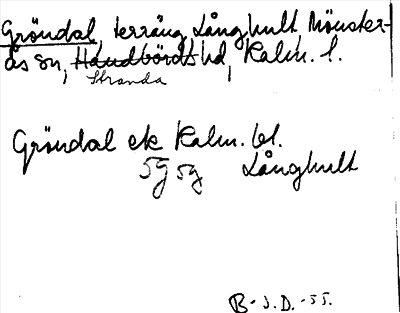 Gröndal, terräng, Långhult, Mönster-
ås sn, Handbörds hd, Kalm. l.
Stranda
Gröndal ek Kalm. bl.
5g 5g Långhult
B. J. D. -55.